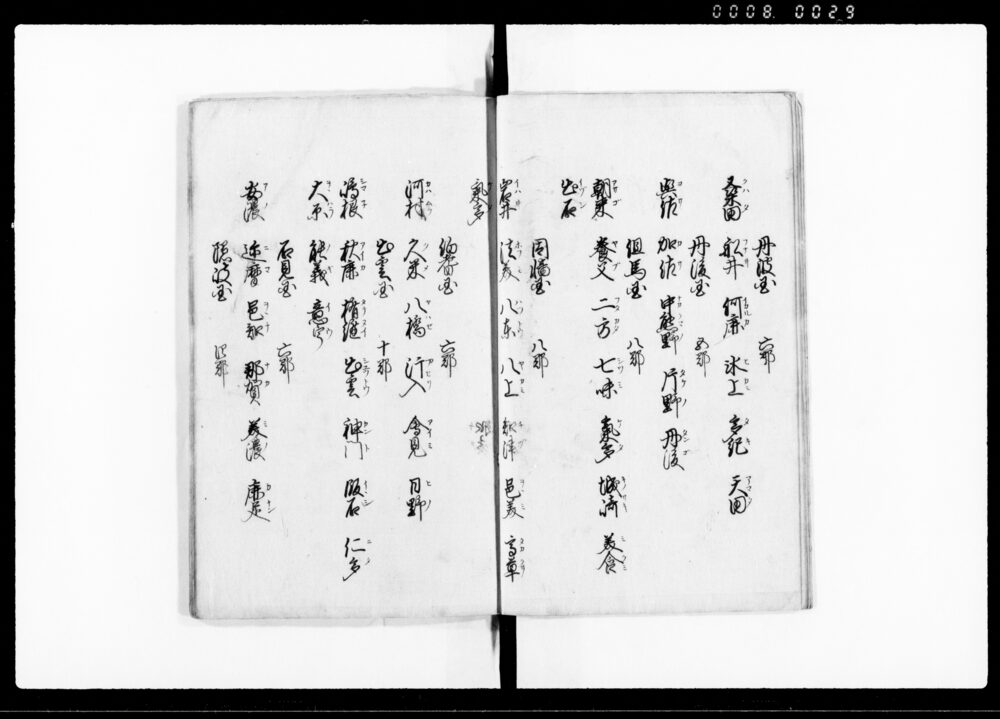 0008 0029
丹波国 六郡
桑田 船井 何鹿 氷上 多紀 天田
丹後国 五郡
與佐 加佐 中熊野 片野 丹後
但馬国 八郡
朝来 養父 二方 七味 氣多 城崎 美含
出石
因幡国 八郡
岩井 法美 八東 八上 知津 邑美 高草
氣多
伯耆国 六郡
河村 久米 八橋 汗入 會見 日野
出雲国 十郡
嶋根 秋鹿 楯縫 出雲 神門 飯石 仁多
大原 能義 意宇
石見国 六郡
安濃 迩摩 邑知 那賀 美濃 鹿足
隠岐国 四郡